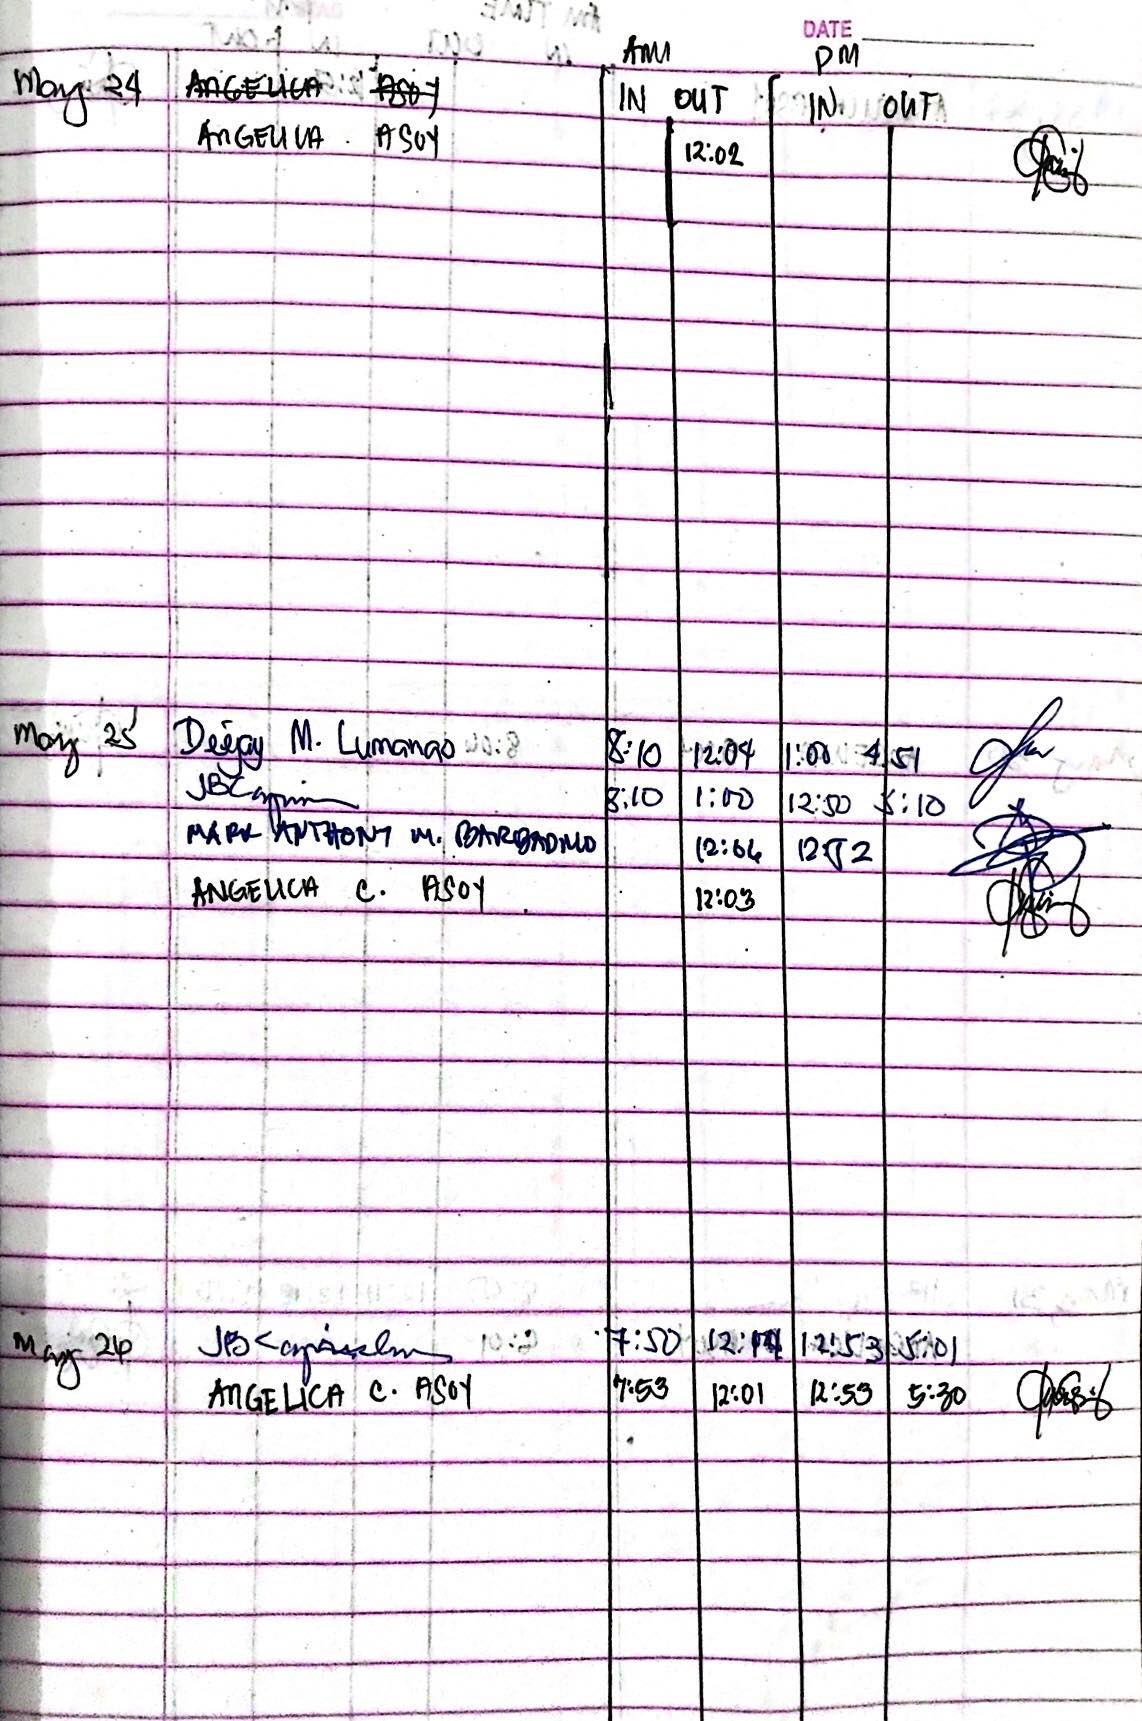 DATE
AM PM
IN OUT IN OUT
May 24 ANGELICA ASOY
ANGELICA ASOY 12:02
May 25 Deejay M. Lumanao 8:10 12:04 1:00 4:51
8:10 1:00 12:50 5:10
MARK ANTHONY M. 12:06 12:52
ANGELICA C. ASOY 12:03
May 26 7:50 12:53 5:01
ANGELICA C. ASOY 7:53 12:01 12:53 5:30